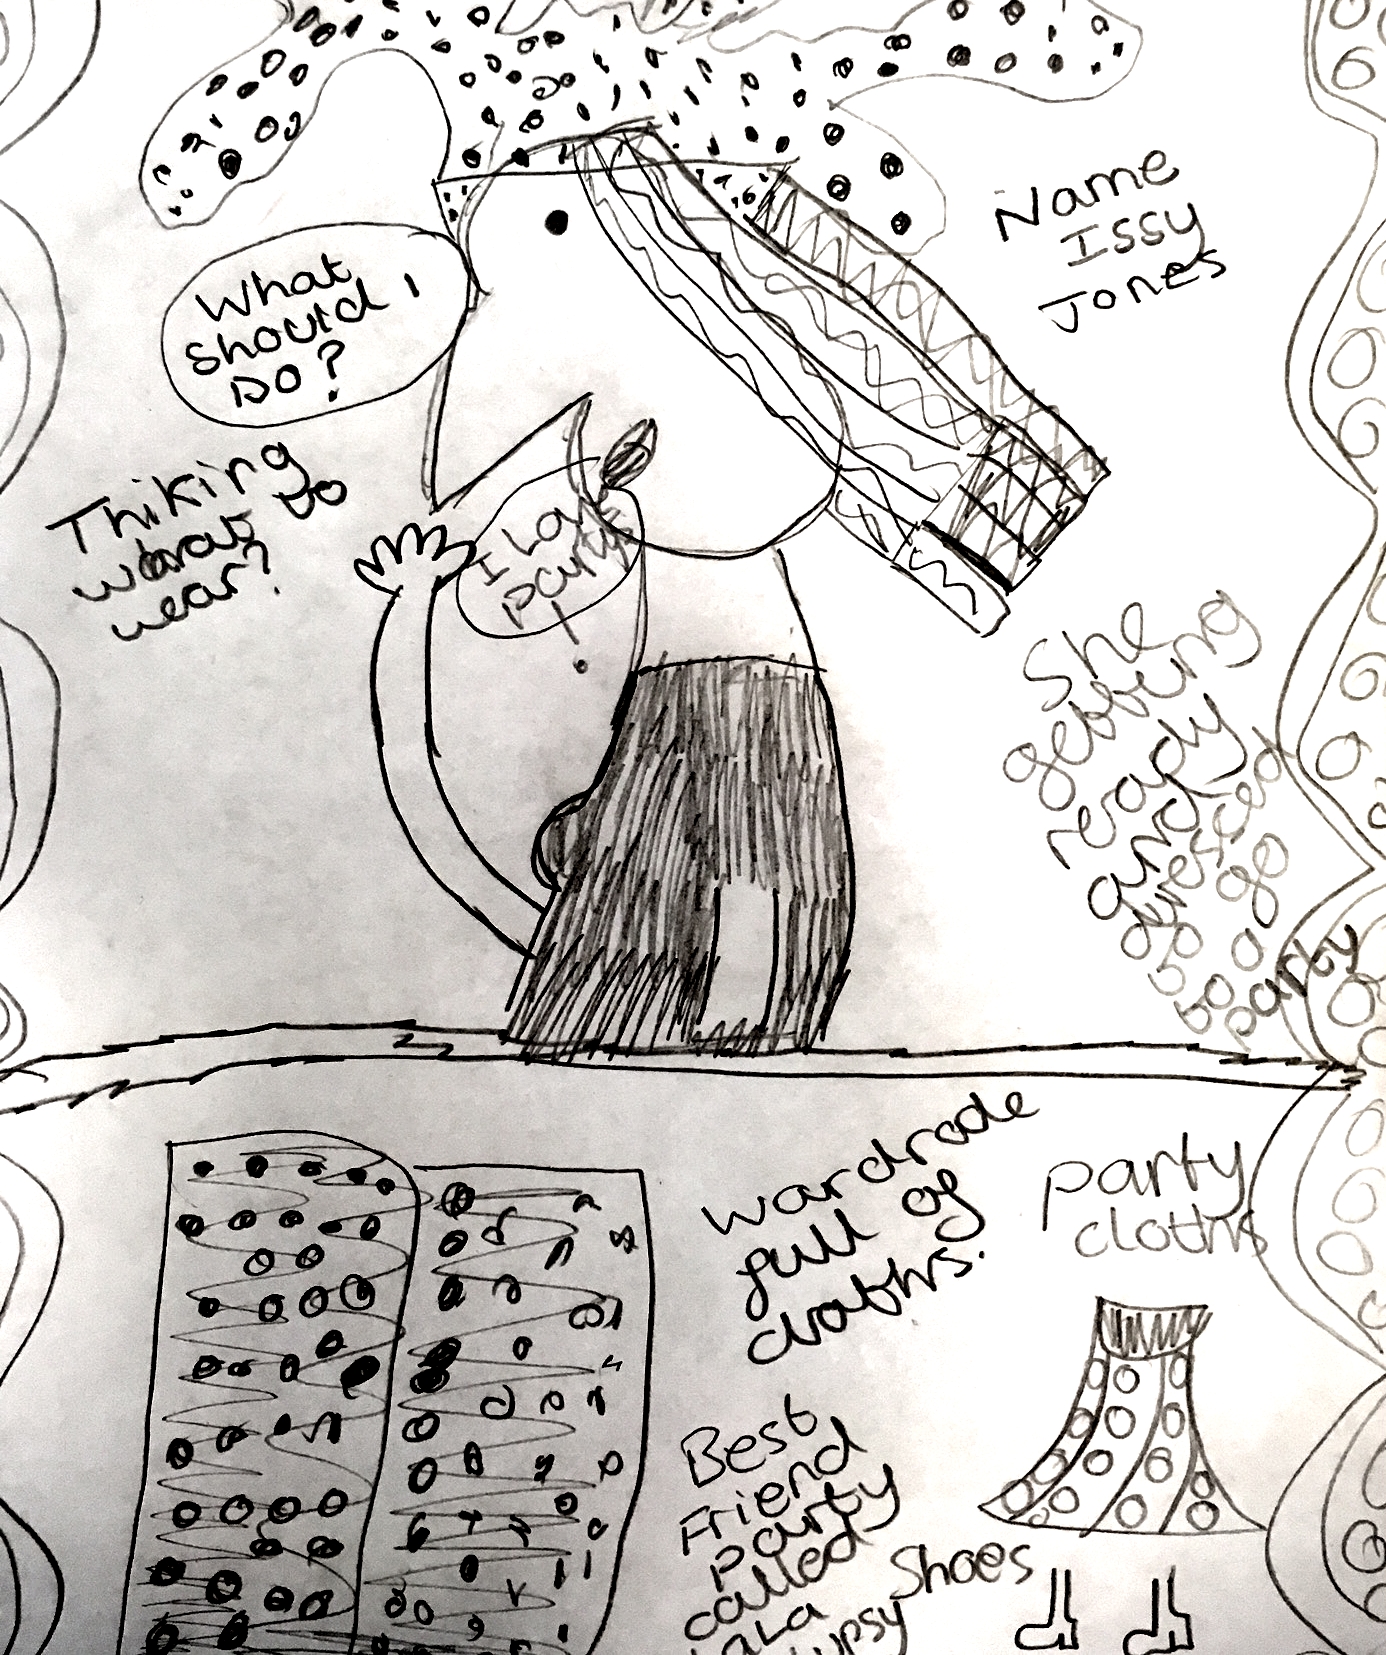 Name
Issy
Jones
What
should I
Do?
Thiking
what to
wear?
I Love
Partys
!
She
getting
ready
and
dressed
to go
to a
party
wardrode
full of
cloths.
Party
cloths
Best
Friend
Party
called
LaLa
Shoes